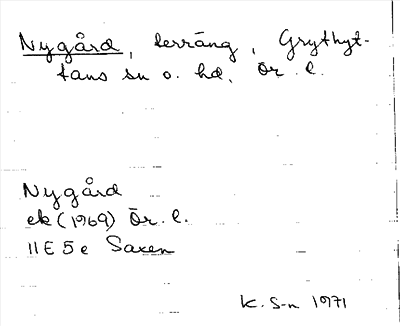 Nygård, terräng, Grythyt-
tans sn o. hd, Ör. l.
Nygård
ek (1969) Ör. l.
11 E 5 e Saxen
K. S-n 1971